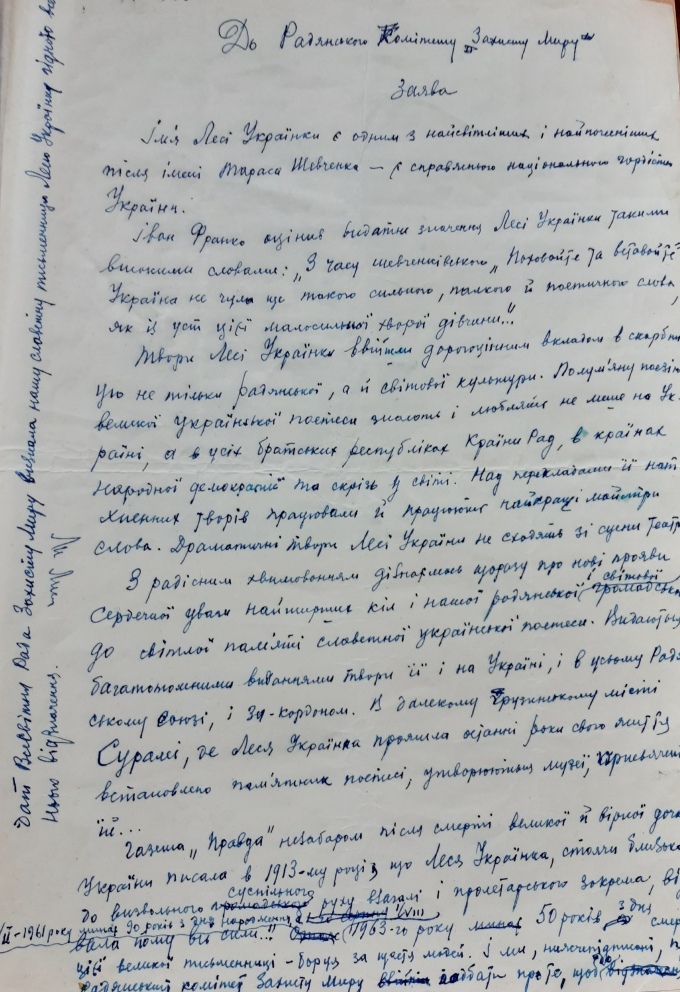 До Радянського Комітету Захисту Миру
Заява
Ім'я Лесі Українки є одним з найсвітліших і найпочесніших
після імені Тараса Шевченка — є справжньою національного гордістю
України.
Іван Франко оцінив видатне значення Лесі Українки такими
високими словами: „З часу шевченківського „Поховайте та вставайте"
Україна не чула ще такого сильного, палкого й поетичного слова,
як із уст цієї малосильної хворої дівчини..."
Твори Лесі Українки ввійшли дорогоцінним вкладом в скарбни-
цю не тільки радянської, а й світової культури. Полум'яну поезію
великої української поетеси знають і люблять не лише на Ук-
раїні, а в усіх братських республіках Країни Рад, в країнах
народної демократії та скрізь у світі. Над перекладами її нат-
хненних творів працювали й працюють найкращі майстри
слова. Драматичні твори Лесі Українки не сходять зі сцени театрів
З радісним хвилюванням дізнаємось щоразу про нові прояви
сердечної уваги найширших кіл і нашої радянської і світової громадськ
до світлої пам'яті славетної української поетеси. Видаються
багатотомними виданнями твори її і на Україні, і в усьому Радян-
ському Союзі, і за-кордоном. В далекому грузинському місті
Сурамі, де Леся Українка прожила останні роки свого життя
встановлено пам'ятник поетесі, утворюються музеї, присвячені
їй...
Газета „Правда" незабаром після смерті великої й вірної дочки
України писала в 1913-му році, що Леся Українка, стоячи близько
до визвольного суспільного руху взагалі і пролетарського зокрема, від
вала йому всі сили..." 1963-го року 50 років з дня смер
цієї великої письменниці - борця за щастя людей. І ми, нижчепідписані,
Радянський комітет Захисту Миру про те, щоб
II-1961 року минає 90 років з дня народження, а
Всесвітня Рада Захисту Миру визнала нашу славетну письменницю Лесю Українку гідною
нього відзначення.